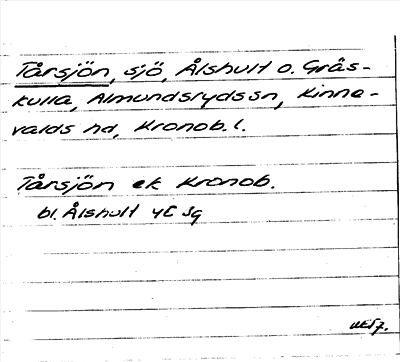 Tårsjön, sjö, Ålshult o. Grås-
kulla, Almundsrydssn, Kinne-
valds hd, Kronob. l.
Tårsjön ek Kronob.
bl. Ålshult 4C Sg